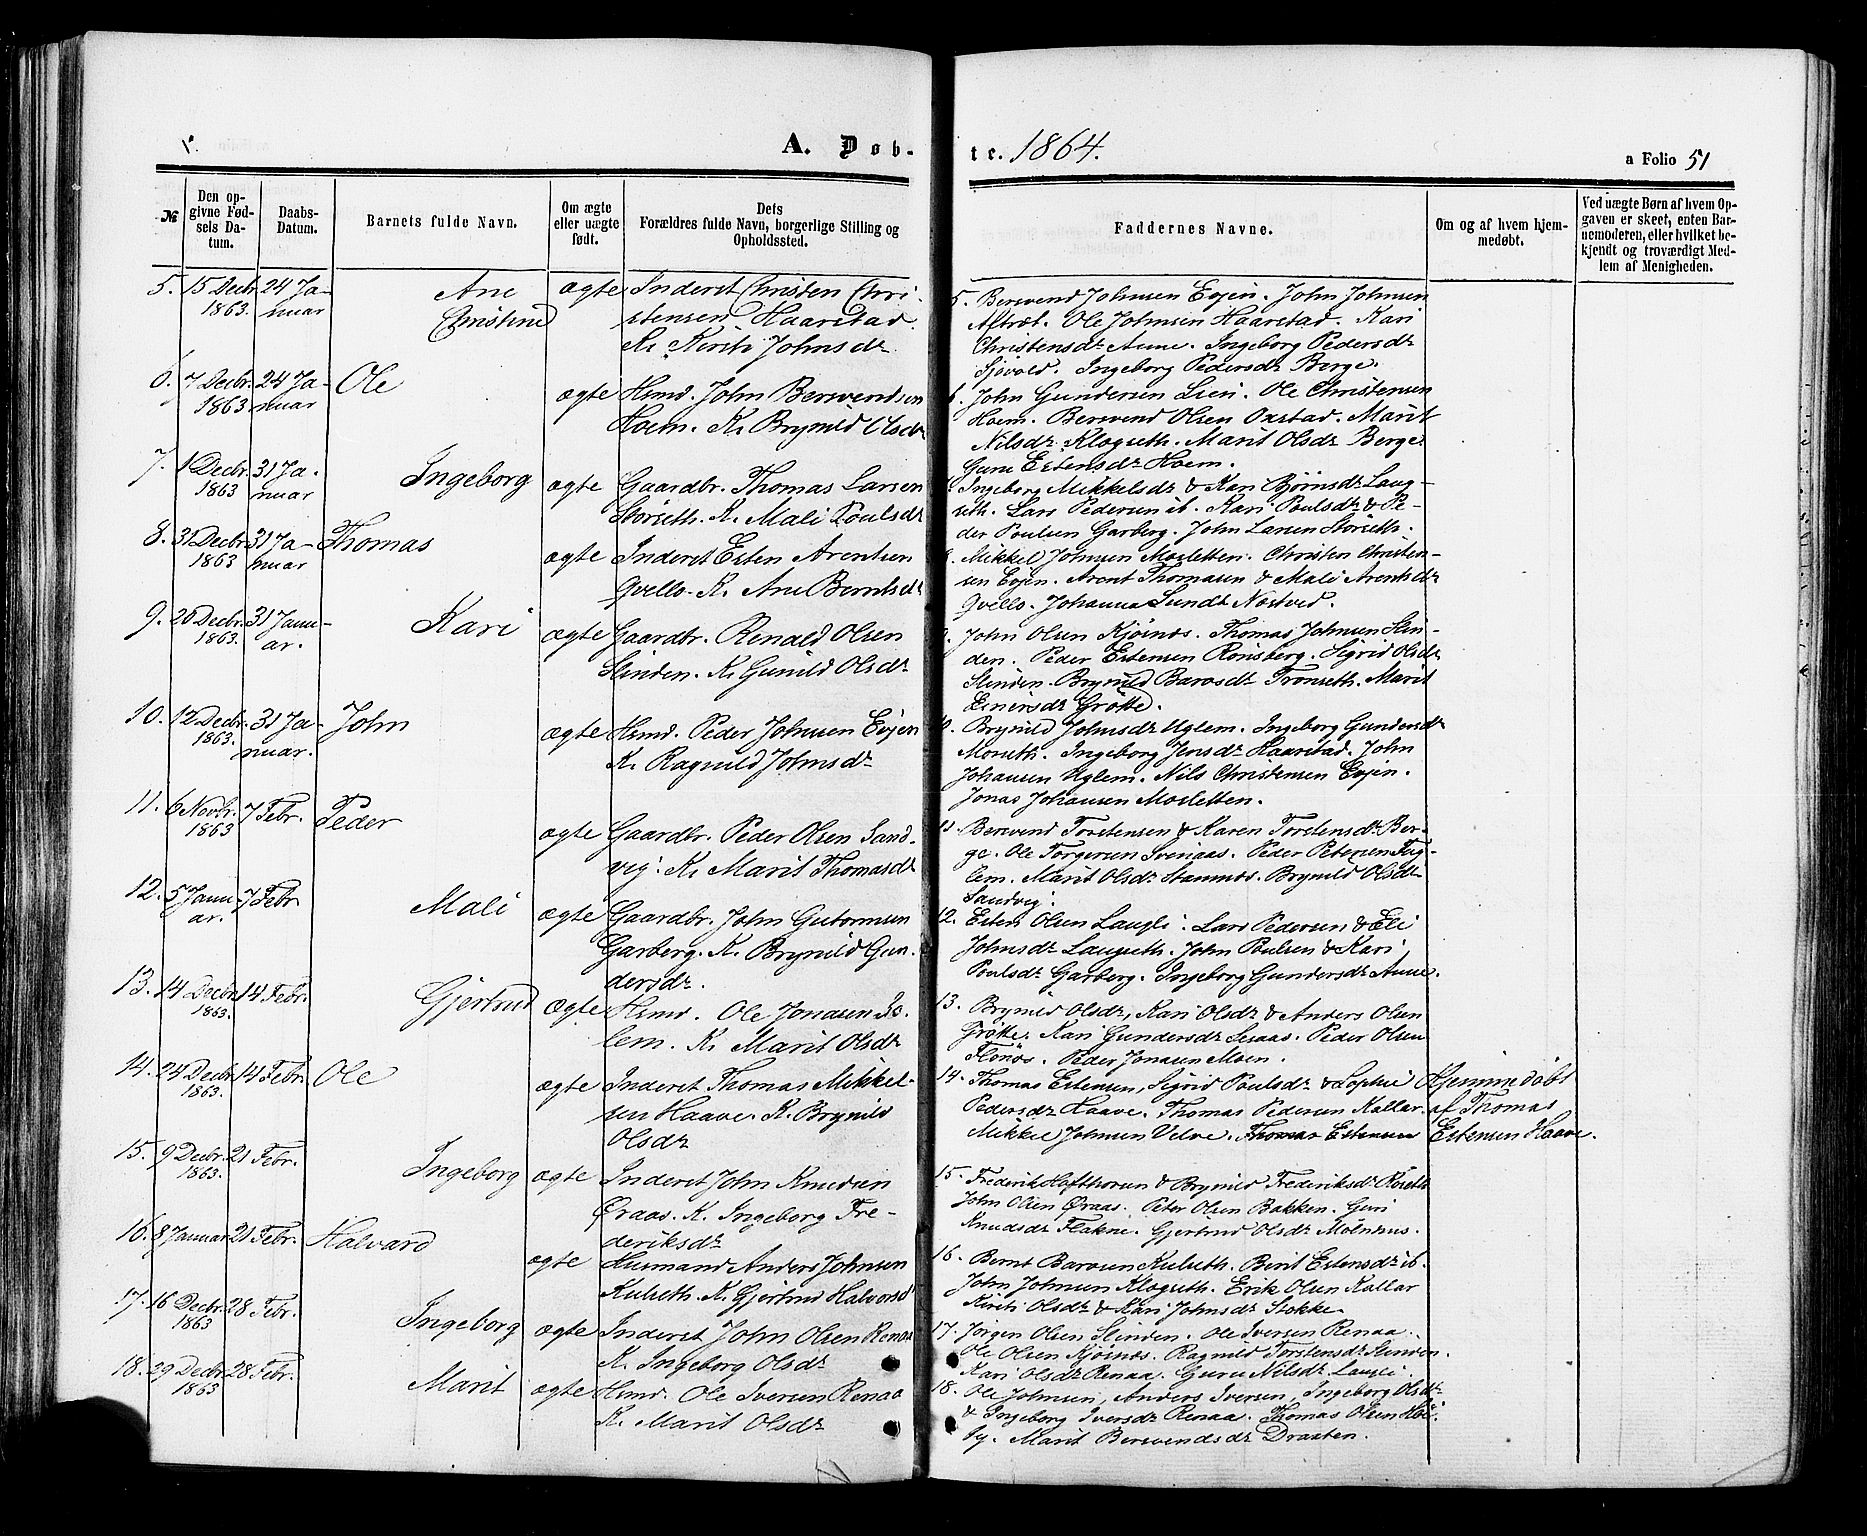 A. Døb-
te. 1864.
a Folio 51
№
Den opgivne Fødsels Datum.
Daabs-Datum.
Barnets fulde Navn.
Om ægte eller uægte født.
Dets Forældres fulde Navn, borgerlige Stilling og Opholdssted.
Faddernes Navne.
Om og af hvem hjemmedøbt.
Ved uægte Børn af hvem Opgaven er skeet, enten Barnemoderen, eller hvilket bekjendt og troværdigt Medlem af Menigheden.
5. 15 Decbr. 24 Ja- Ane ægte Inderst Christen Chri-
1863. nuar Christine stensen Haarstad.
K. Kirsti Johnsdr.
6. 7 Decbr. 24 Ja- Ole ægte Hsmd. John Bersvendsen
1863 nuar Hoem. K. Brynild Olsdr
7. 1 Decbr. 31 Ja- Ingeborg ægte Gaardbr. Thomas Larsen
1863 nuar Storseth. K. Mali Poulsdr
8. 31 Decbr. 31 Ja- Thomas ægte Inderst Esten Arentsen
1863 nuar Qvello. K. Ane Berntsdr
9. 20 Decbr. 31 Janu- Kari ægte Gaardbr. Renald Olsen
1863. ar. Slinden. K. Gunild Olsdr
10. 12 Decbr. 31 Ja- John ægte Hsmd. Peder Johnsen Evjen
1863. nuar. K. Ragnild Johnsdr
11. 6 Novbr. 7 Febr. Peder ægte Gaardbr. Peder Olsen Sand-
1863 vig. K. Marit Thomasdr
12. 5 Janu- 7 Febr Mali ægte Gaardbr. John Gutormsen
ar. Garberg. K. Brynild Gun-
dersdr.
13. 14 Decbr. 14 Febr. Gjertrud ægte Hsmd. Ole Jonasen So-
1863. lem. K. Marit Olsdr
14. 24 Decbr. 14 Febr. Ole ægte Inderst Thomas Mikkel-
1863. sen Haave. K. Brynild
Olsdr
15. 9 Decbr. 21 Febr. Ingeborg ægte Inderst John Knudsen
1863. Øraas. K. Ingeborg Fre-
deriksdr
16. 8 Januar 21 Febr. Halvard ægte Husmand Anders Johnsen
Kulseth. K. Gjertrud Halvorsd
17. 16 Decbr. 28 Febr. Ingeborg ægte Inderst John Olsen Renaa
1863 K. Ingeborg Olsdr
18. 29 Decbr 28 Febr. Marit ægte Hsmd. Ole Iversen Renaa
1863 K. Marit Olsdr
5. Bersvend Johnsen Evjen. John Johnsen
Aftret. Ole Johnsen Haarstad. Kari
Christensdr Aune. Ingeborg Pedersdr
Sjøvold. Ingeborg Pedersdr Berge.
6. John Gundersen Lien. Ole Christensen
Hoem. Bersvend Olsen Oxstad. Marit
Nilsdr Klogseth. Marit Olsdr Berge
Guru Estensdr Hoem.
Ingeborg Mikkelsdr & Kari Bjørnsdr Laug-
seth. Lars Pedersen ib. Kari Poulsdr & Pe-
der Poulsen Garberg. John Larsen Storseth.
Mikkel Johnsen Mosletten. Christen Christen-
sen Evjen. Arent Thomasen & Mali Arentsdr
Qvello. Johanna Lundt Nostved.
9. John Olsen Kjøsnæs. Thomas Johnsen Slin-
den. Peder Estensen Rønsberg. Sigrid Olsdr
Slinden. Brynild Barosdr Trønseth. Marit
Einersdr Grøtte.
10. Brynild Johnsdr Uglem. Ingeborg Gundersdr
Moseth. Ingeborg Jensdr Haarstad. John
Johansen Uglem. Nils Christensen Evjen.
Jonas Johansen Mosletten.
11. Bersvend Torstensen & Karen Torstensdr Ber-
ge. Ole Torgersen Svenaas. Peder Petersen Fug-
lem. Marit Olsdr Stamnæs. Brynild Olsdr
Sandvig.
12. Esten Olsen Laugli. Lars Pedersen & Eli
Johnsdr Laugseth. John Poulsen & Kari
Poulsdr Garberg. Ingeborg Gundersdr Aune.
13. Brynild Olsdr, Kari Olsdr & Anders Olsen
Grøtte. Kari Gundersdr Lesaas. Peder Olsen
Flønæs. Peder Jonasen Moen.
14. Thomas Estensen, Sigrid Poulsdr & Sophie Hjemmedøbt
Pedersdr Haave. Thomas Pedersen Kallar. af Thomas
Mikkel Johnsen Velve. Thomas Estensen Estensen Haave.
15. Frederik Hafthorsen & Brynild Frederiksdr Røseth
John Olsen Øraas. Peter Olsen Bakken. Guri
Knudsdr Flakne. Gjertrud Olsdr Mølnhus.
16. Bernt Barosen Kulseth. Berit Estensdr ib.
John Johnsen Klogseth. Erik Olsen Kallar
Kirsti Olsdr & Kari Johnsdr Stokke.
17. Jørgen Olsen Slinden. Ole Iversen Renaa.
Ole Olsen Kjøsnæs. Ragnild Torstensdr Slinden.
Kari Olsdr Renaa. Guru Nilsdr Laugli.
18. Ole Johnsen, Anders Iversen, Ingeborg Olsdr
& Ingeborg Iversdr Renaa. Thomas Olsen Høi-
by. Marit Bersvendsdr Draxten.